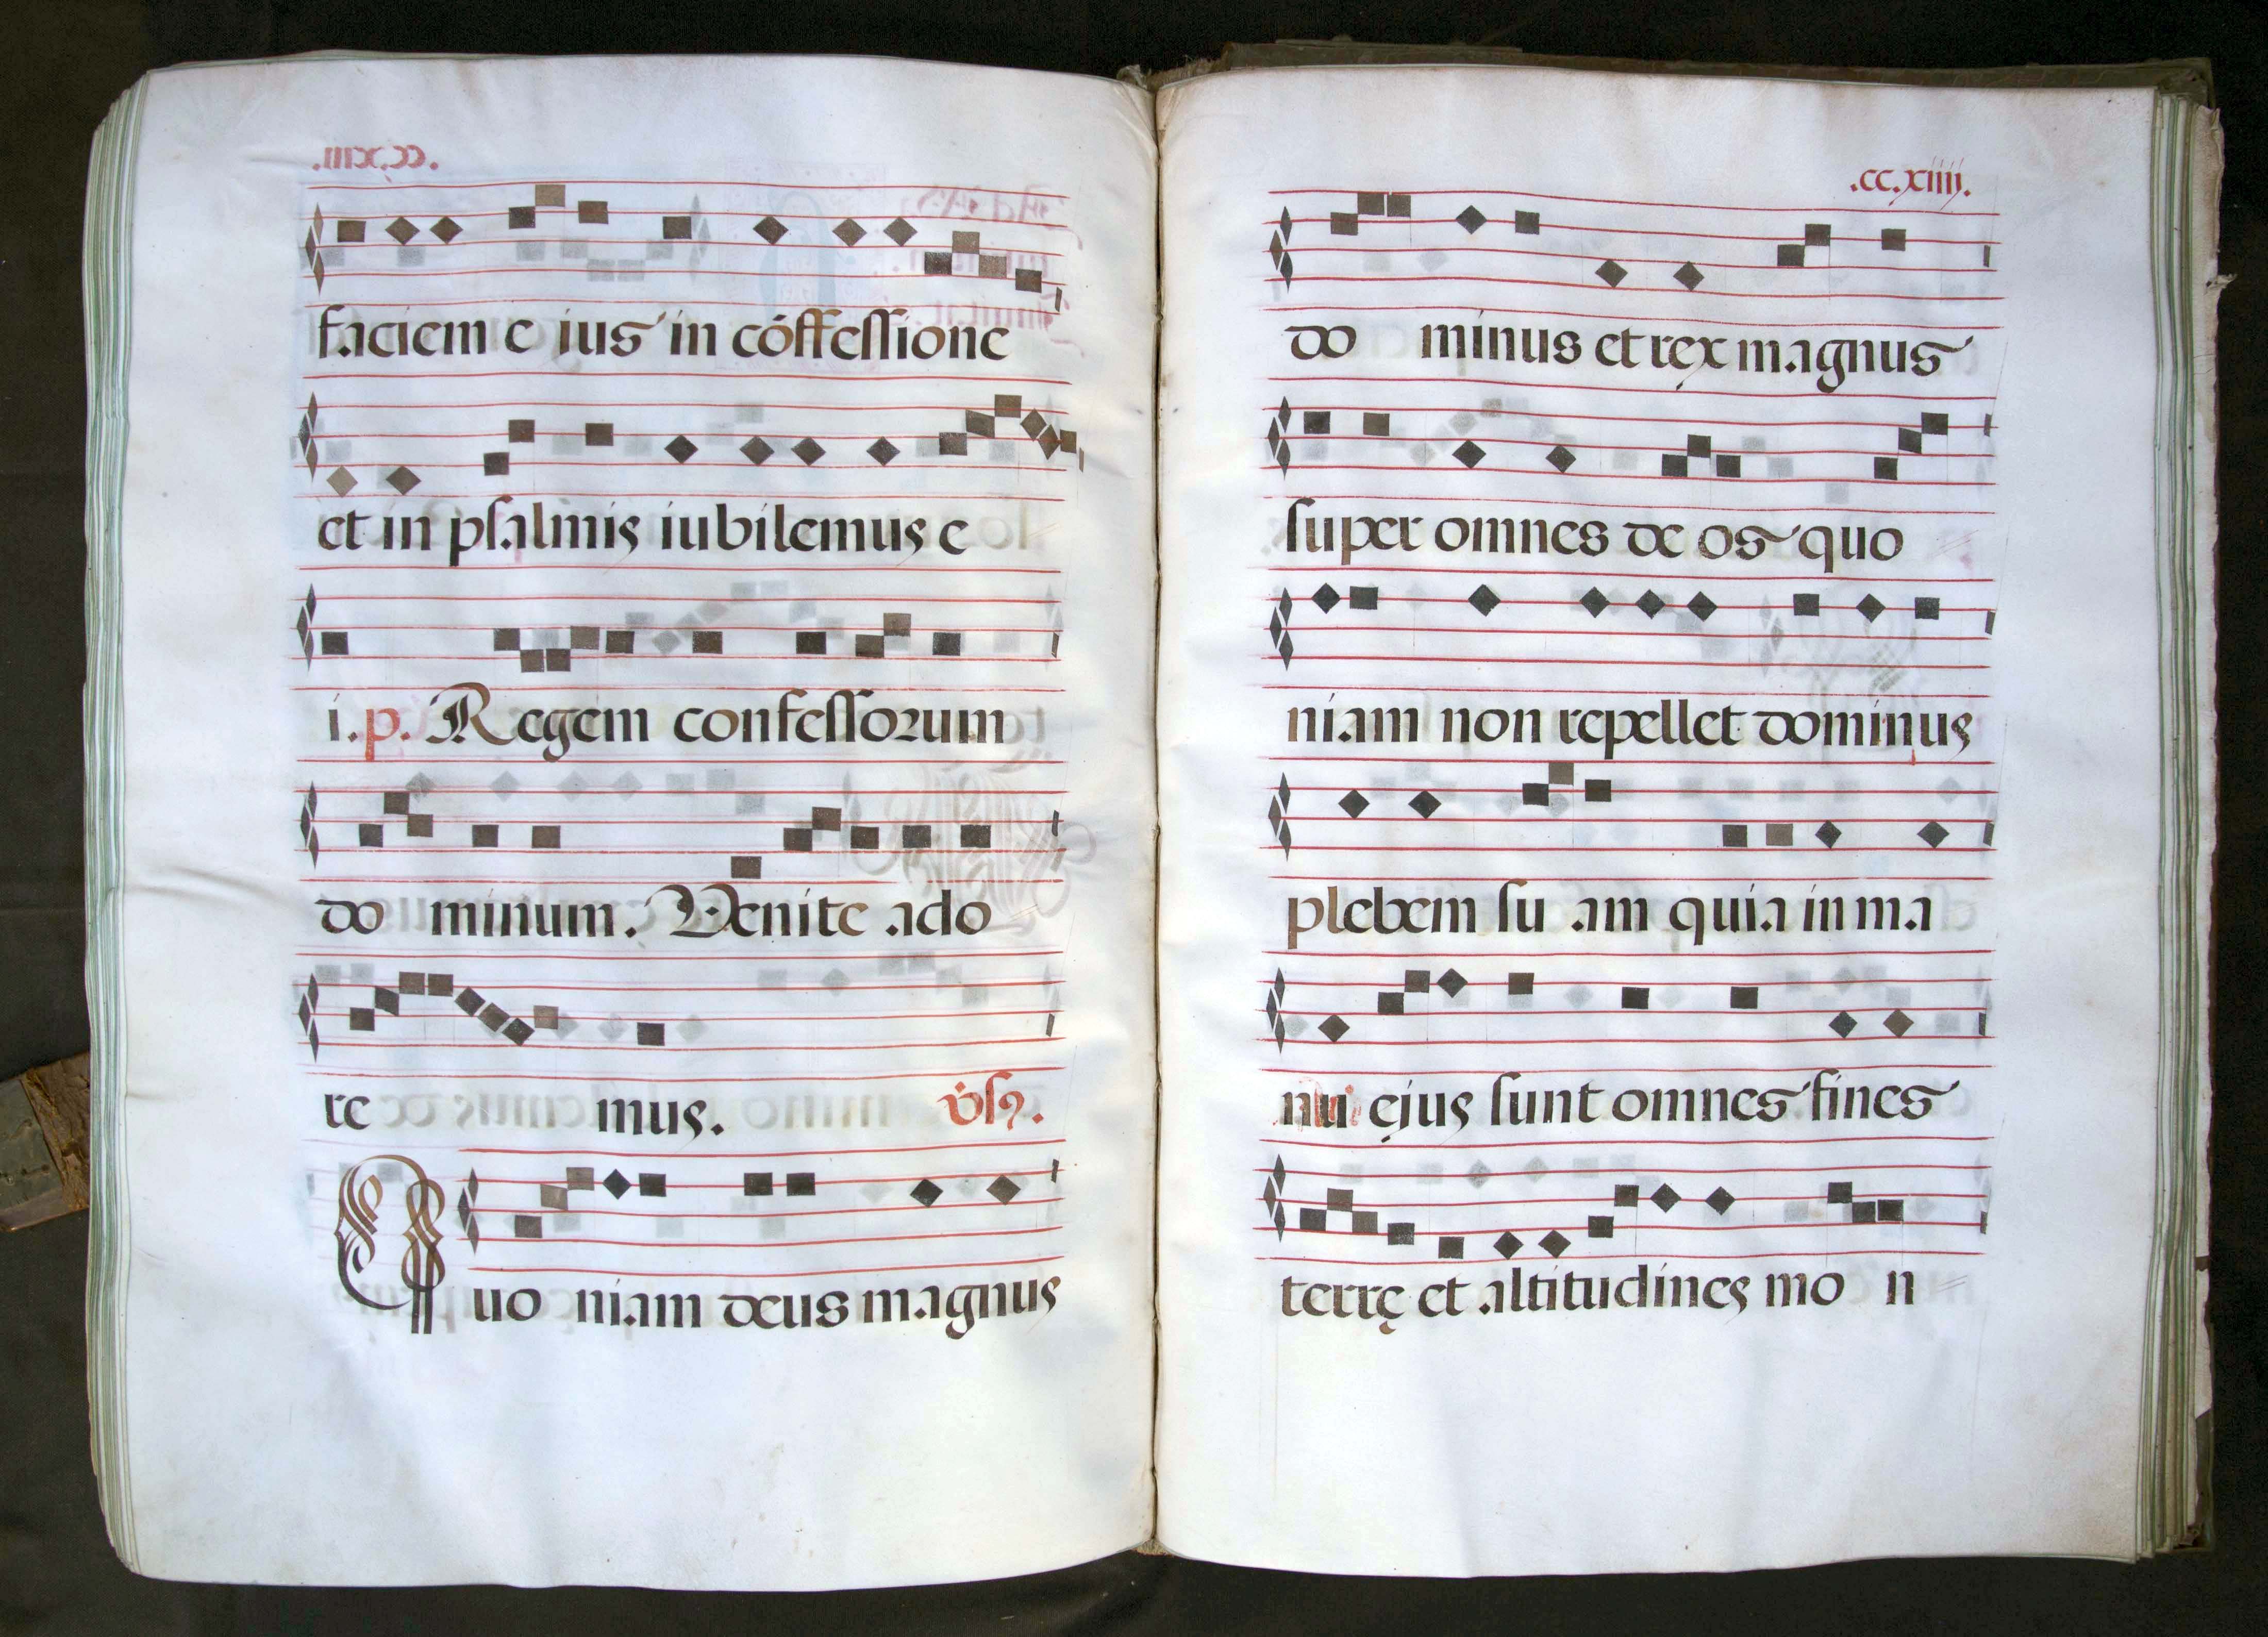 faciem e ius in cōffessione
et in psalmis iubilemus e
i. p. Regem confessorum
do minum. Venite ado
re mus. v̇s.
Quo niam deus magnus
.cc.xiiii.
do minus et rex magnus
super omnes de os quo
niam non repellet dominus
plebem su am quia in ma
nu ejus sunt omnes fines
terrę et altitudines mo n